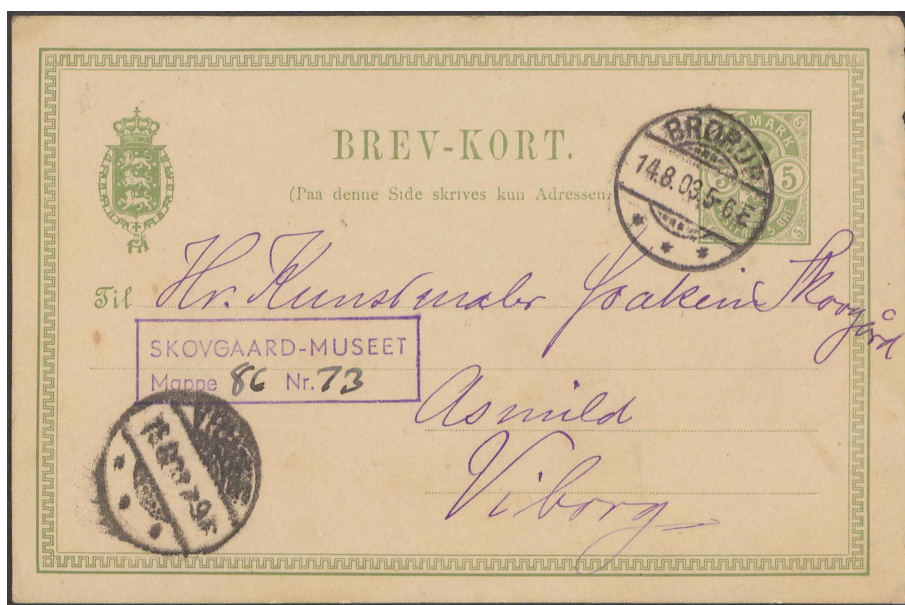 BREV-KORT.
(Paa denne Side skrives kun Adressen.)
BRØRUP
14.8.03.5-6E
MARK
5
5
Til Hr. Kunstmaler Joakim Skovgård
SKOVGAARD-MUSEET
Mappe 86 Nr. 73
Asmild
Viborg